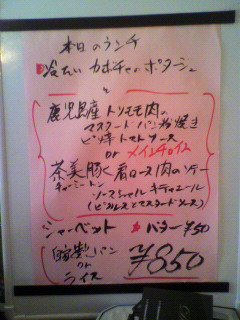 本日のランチ
冷たいカボチャのポタージュ
と
鹿児島産トリモモ肉の
マスタードパン粉焼き
ピリ辛トマトソース
or メインチョイス
茶美豚く肩ロース肉のソテー
チャーミートン
ソースシャルキティエール
(ピクルスとマスタードソース)
シャーベット
バター ¥50
自家製パン
or
ライス
¥850